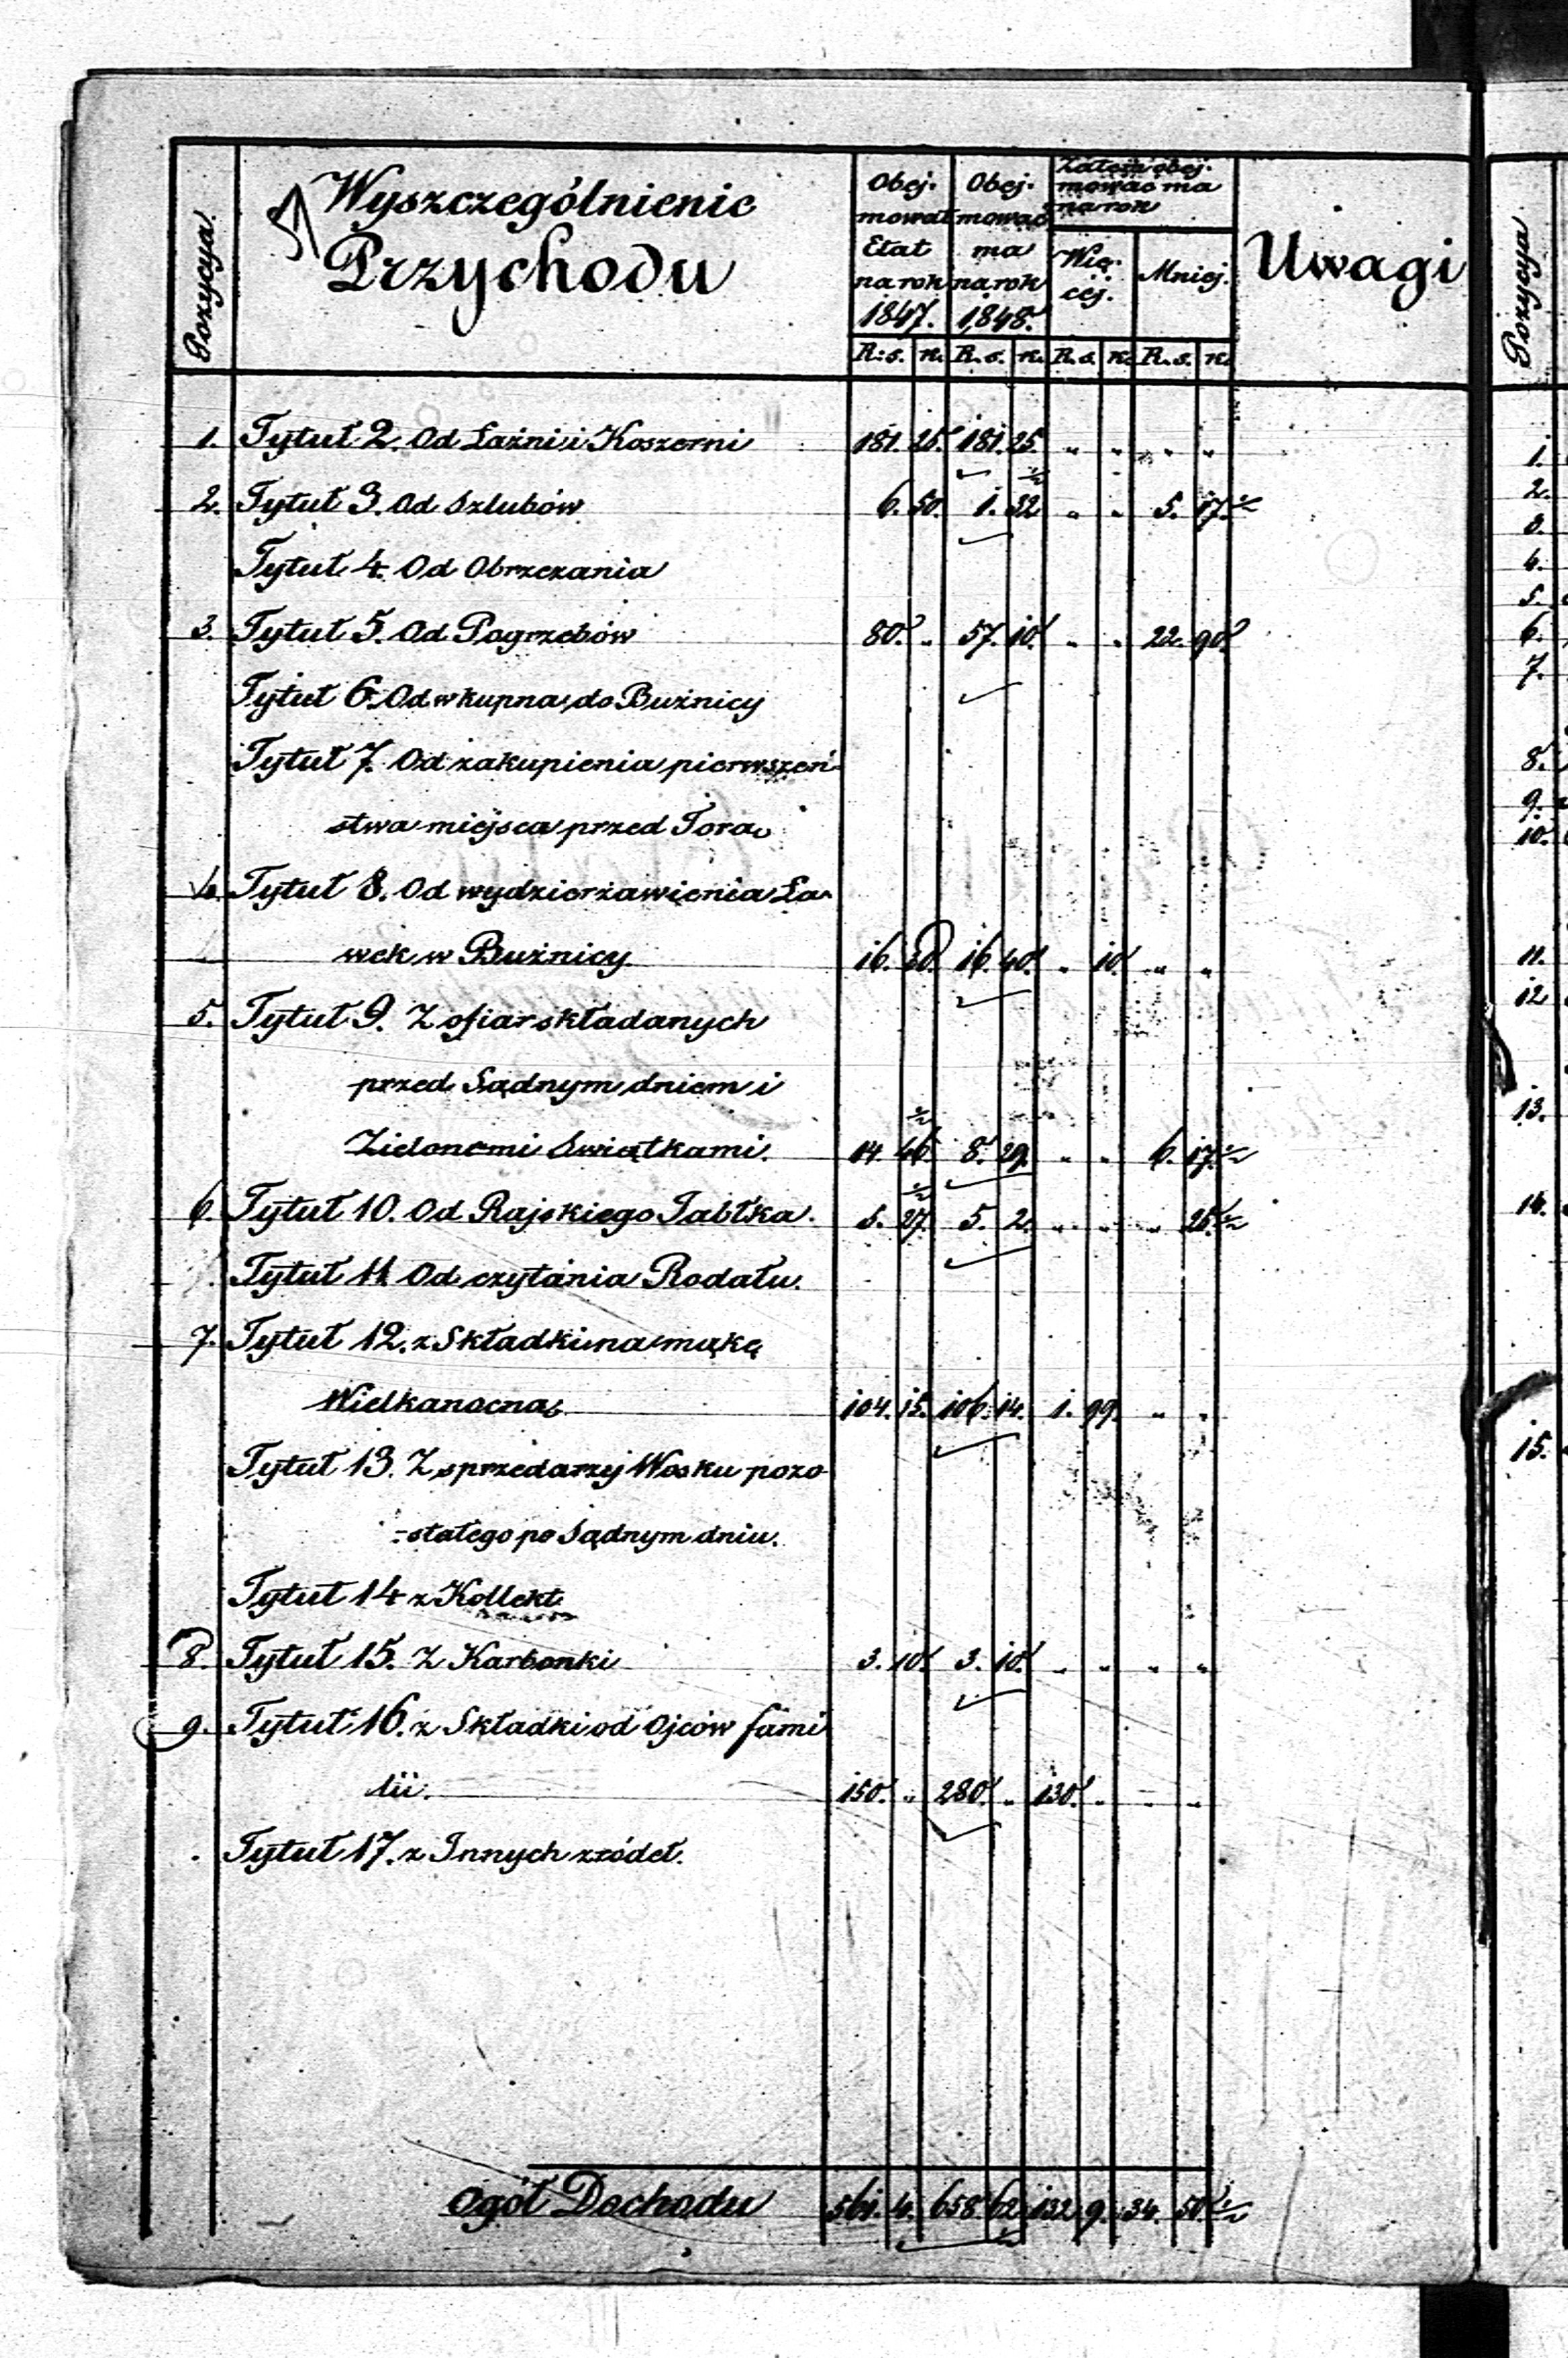 Pozycya
Wyszczególnienie
Przychodu
Obejmował Etat na rok 1847.
Obejmować ma na rok 1848.
Zatem obejmować ma na rok
Więcej.
Mniej.
Uwagi
Pozycya
R: s. k. R. s. k. R. s. k. R. s. k.
1. Tytuł 2. Od Łaźni i Koszerni 181. 25. 181. 25. „ „ „ „
2. Tytuł 3. Od Szlubów 6. 50. 1. 32 1/2 „ „ 5. 17. 1/2
Tytuł 4. Od Obrzezania
3. Tytuł 5. Od Pogrzebów 80. „ 57. 10. „ „ 22. 90.
Tytuł 6. Od wkupna do Bużnicy
Tytuł 7. Od zakupienia pierwszeń-
stwa miejsca przed Torą
4. Tytuł 8. Od wydzierżawienia Ła-
wek w Bużnicy 16. 30. 16. 40. „ 10. „ „
5. Tytuł 9. Z ofiar składanych
przed Sądnym dniem i
Zielonemi Swiątkami. 14. 46 1/2 8. 29. „ „ 6. 17. 1/2
6. Tytuł 10. Od Rajskiego Jabłka. 5. 27 1/2 5. 2. „ „ „ 25. 1/2
Tytuł 11. Od czytania Rodału.
7. Tytuł 12. z Składki na mąkę
Wielkanocną 104. 15. 106. 14. 1. 99. „ „
Tytuł 13. Z sprzedarzy Wosku pozo
-stałego po Sądnym dniu.
Tytuł 14 z Kollekt
8. Tytuł 15. Z Karbonki 3. 10. 3. 10. „ „ „ „
9. Tytuł 16. z Składki od Ojców fami
lii. 150. „ 280. „ 130. „ „ „
Tytuł 17. z Innych zródeł.
Ogół Dochodu 561. 4. 658. 62 1/2 132 9. 34. 50. 1/2
1.
2.
3.
4.
5.
6.
7.
8.
9.
10.
11.
12
13.
14.
15.